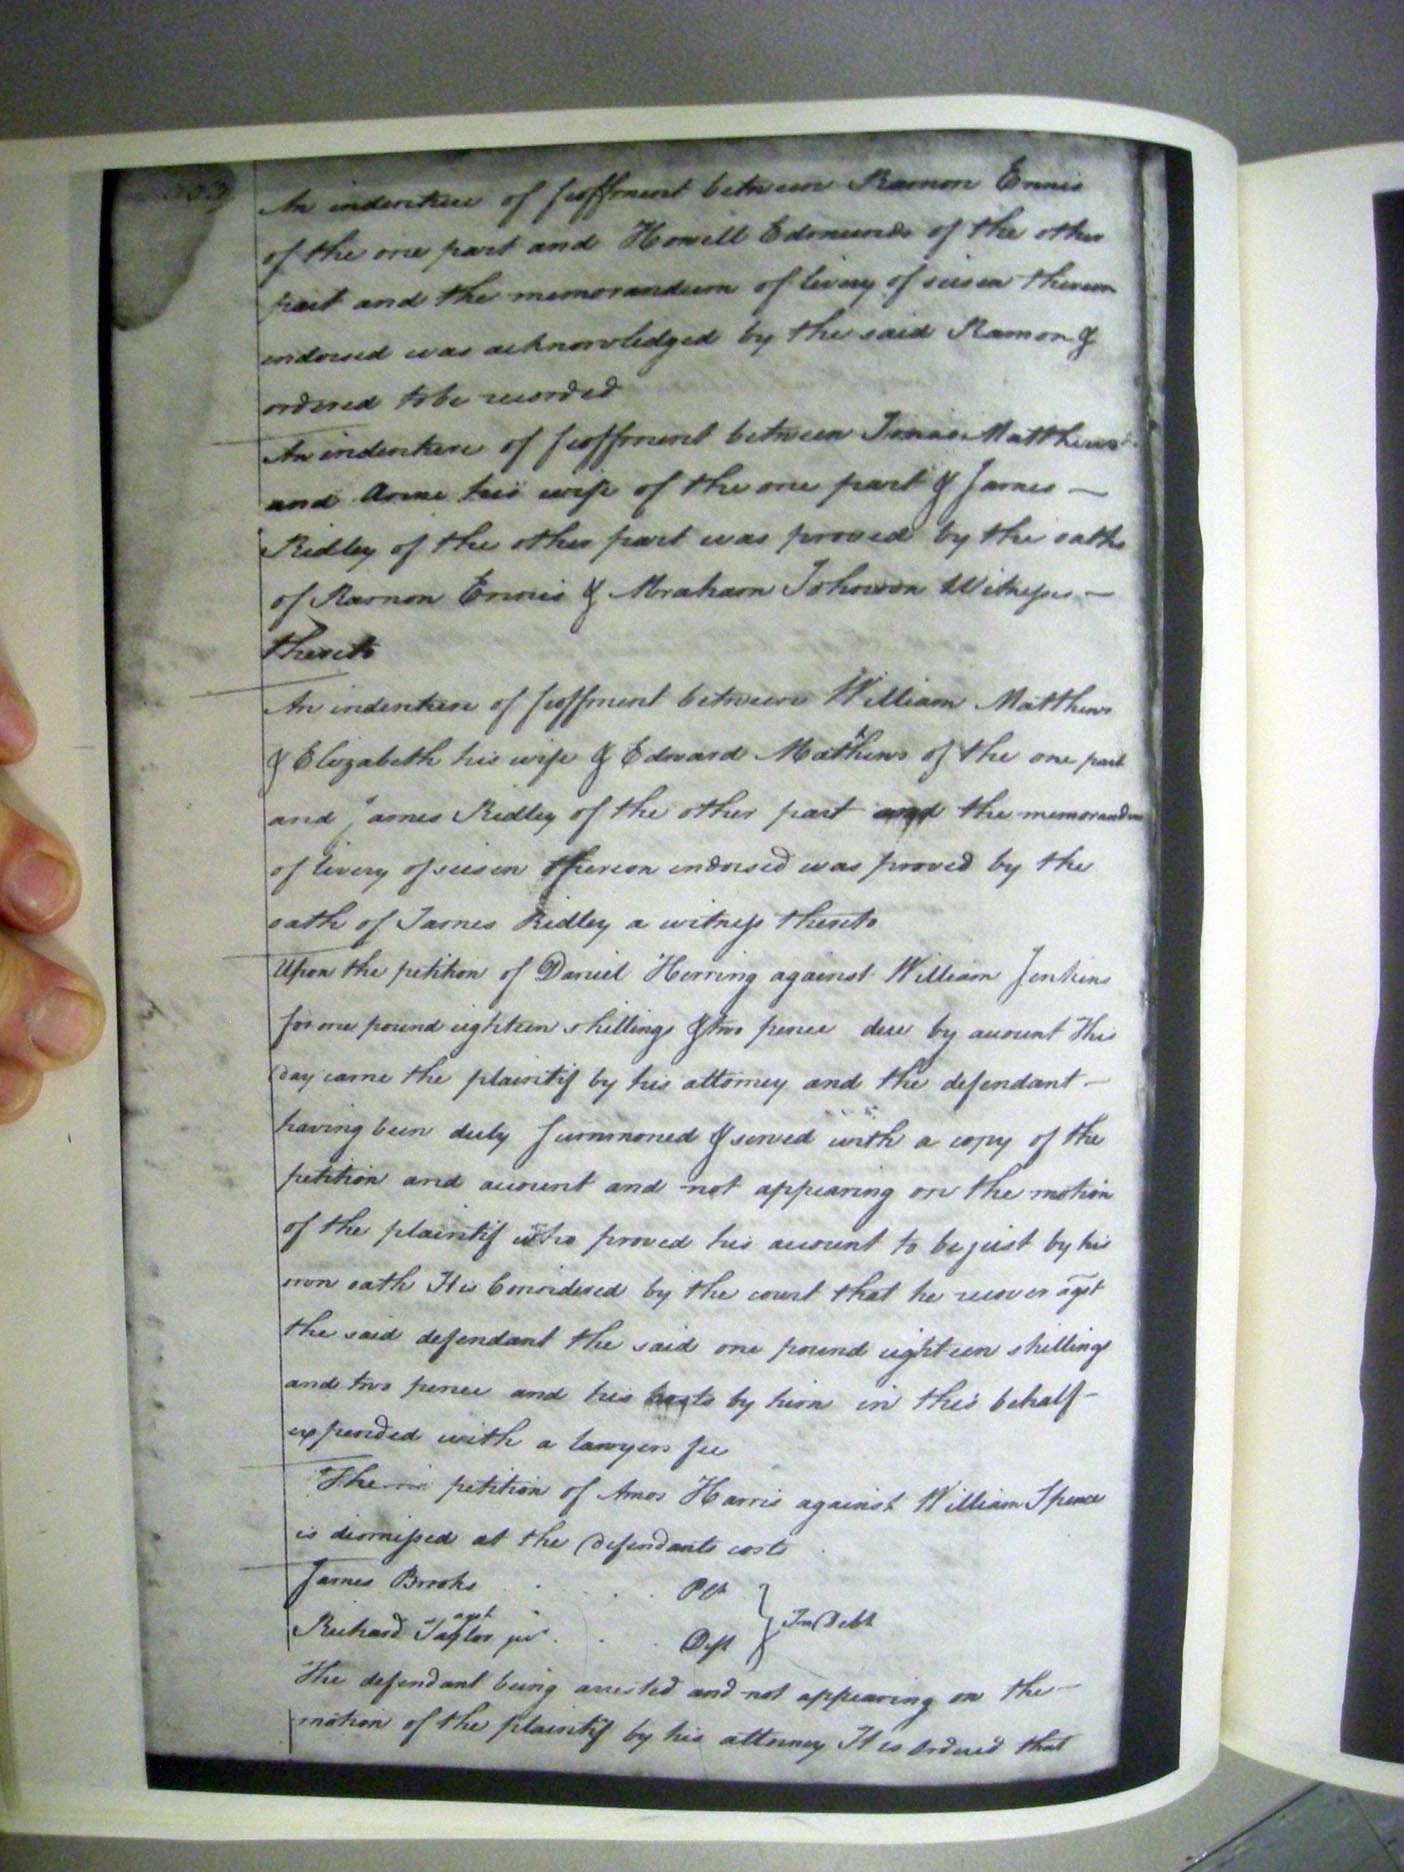 An indenture of feoffment between Ramon Ennis
of the one part and Howell Edmunds of the other
part and the memorandum of livery of seisen thereon
endorsed was acknowledged by the said Ramon &
ordered to be recorded
An indenture of feoffment between Matthews
and Anne his wife of the one part & James —
Ridley of the other part was proved by the oaths
of Ramon Ennis & Abraham Johnson Witnesses —
thereto
An indenture of feoffment between William Matthews
& Elizabeth his wife & Edward Matthews of the one part
and James Ridley of the other part and the memorandum
of livery of seisen thereon endorsed was proved by the
oath of James Ridley a witness thereto
Upon the petition of Daniel Herring against William Jenkins
for one pound eighteen shillings & two pence due by account This
day came the plaintif by his attorney and the defendant —
having been duly summoned & served with a copy of the
petition and account and not appearing on the motion
of the plaintif who proved his account to be just by his
own oath It is Considered by the court that he recover agst
the said defendant the said one pound eighteen shillings
and two pence and his costs by him in this behalf —
expended with a lawyers fee
The petition of Amos Harris against William Spence
is dismissed at the defendants costs
James Brooks . . . Plt
agst } In Debt
Richard Taylor jur . . . Deft
The defendant being arrested and not appearing on the —
motion of the plaintif by his attorney It is Ordered that